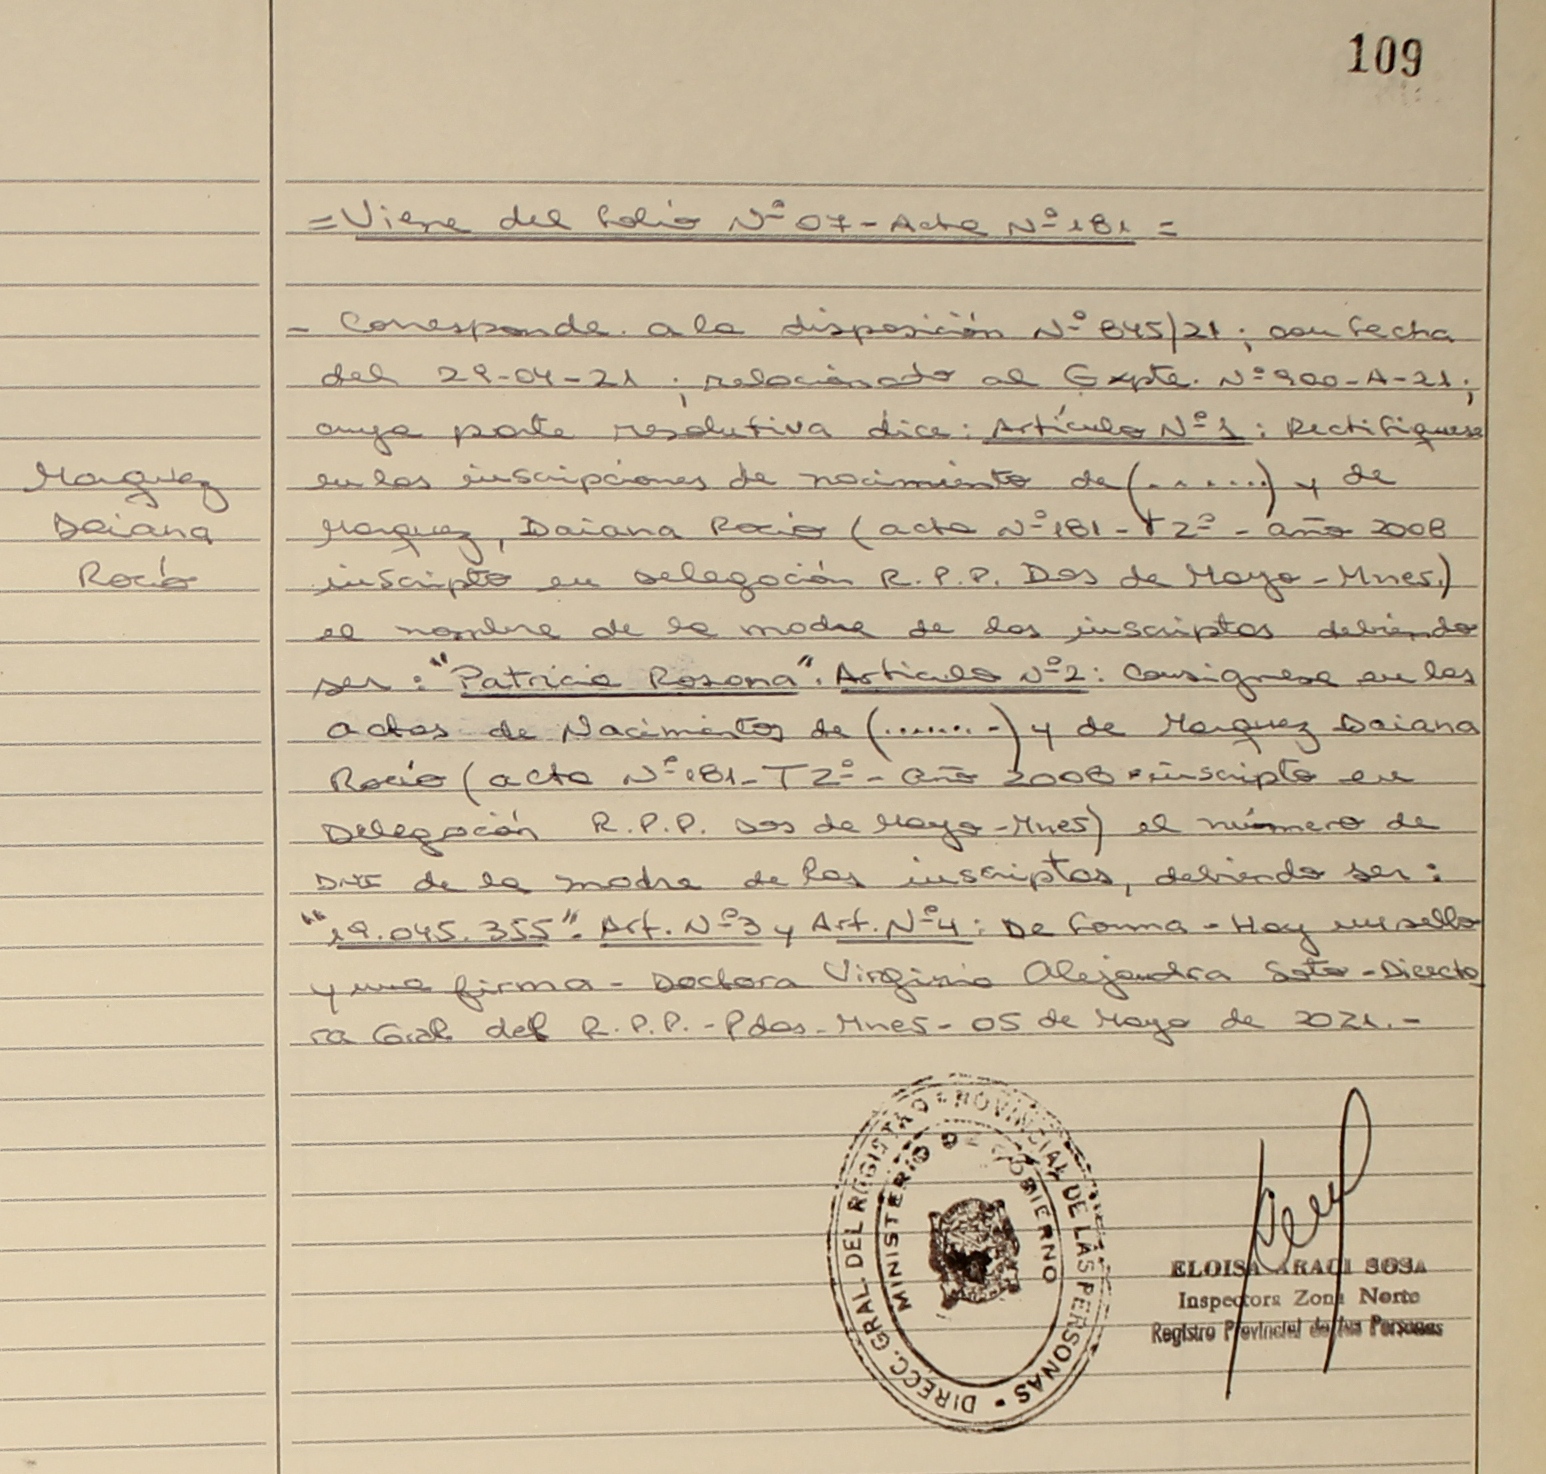 109
= Viene del folio Nº 07 - Acta Nº 181 =
- Corresponde a la disposición Nº 845/21; con fecha
del 29-04-21; relacionado al Expte. Nº 900-A-21;
cuya parte resolutiva dice: Artículo Nº 1: Rectifíquese
en las inscripciones de nacimiento de (.......) y de
Marquez, Daiana Rocío (acta Nº 181 - T 2º - año 2008
inscripto en delegación R.P.P. Dos de Mayo - Mnes.)
el nombre de la madre de los inscriptos debiendo
ser: "Patricia Rosana". Articulo Nº 2: Consignese en las
actas de Nacimientos de (.......) y de Marquez Daiana
Rocío (acta Nº 181 - T 2º - año 2008 - inscripto en
Delegación R.P.P. Dos de Mayo - Mnes) el número de
DNI de la madre de los inscriptos, debiendo ser:
"19.045.355". Art. Nº 3 y Art. Nº 4: De forma - Hay un sello
y una firma - Doctora Virginia Alejandra Soto - Directo
ra Gral del R.P.P. - Pdas - Mnes - 05 de Mayo de 2021.-
Marquez
Daiana
Rocío
DIRECC. GRAL. DEL REGISTRO PROVINCIAL DE LAS PERSONAS
MINISTERIO DE GOBIERNO
ELOISA ARACI SOSA
Inspectora Zona Norte
Registro Provincial de las Personas